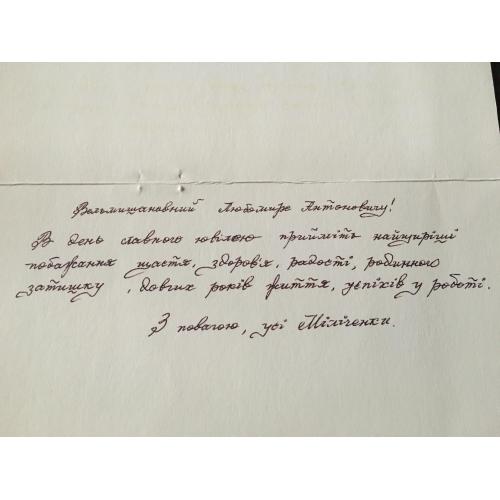 Вельмишановний Любомире Антоновичу!
В день славного ювілею прийміть найщиріші
побажання щастя, здоров'я, радості, родинного
затишку, довгих років життя, успіхів у роботі.
З повагою, усі Міліченки.